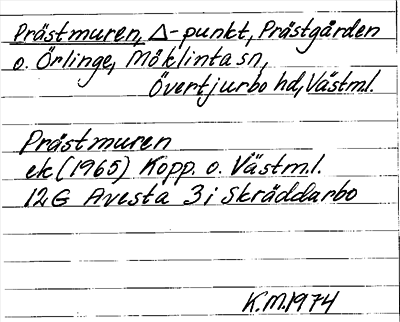 Prästmuren, Δ-punkt, Prästgården
o. Örlinge, Möklinta sn,
Övertjurbo hd, Västml.
Prästmuren
ek (1965) Kopp. o. Västm.l.
12G Avesta 3i Skräddarbo
K.M.1974